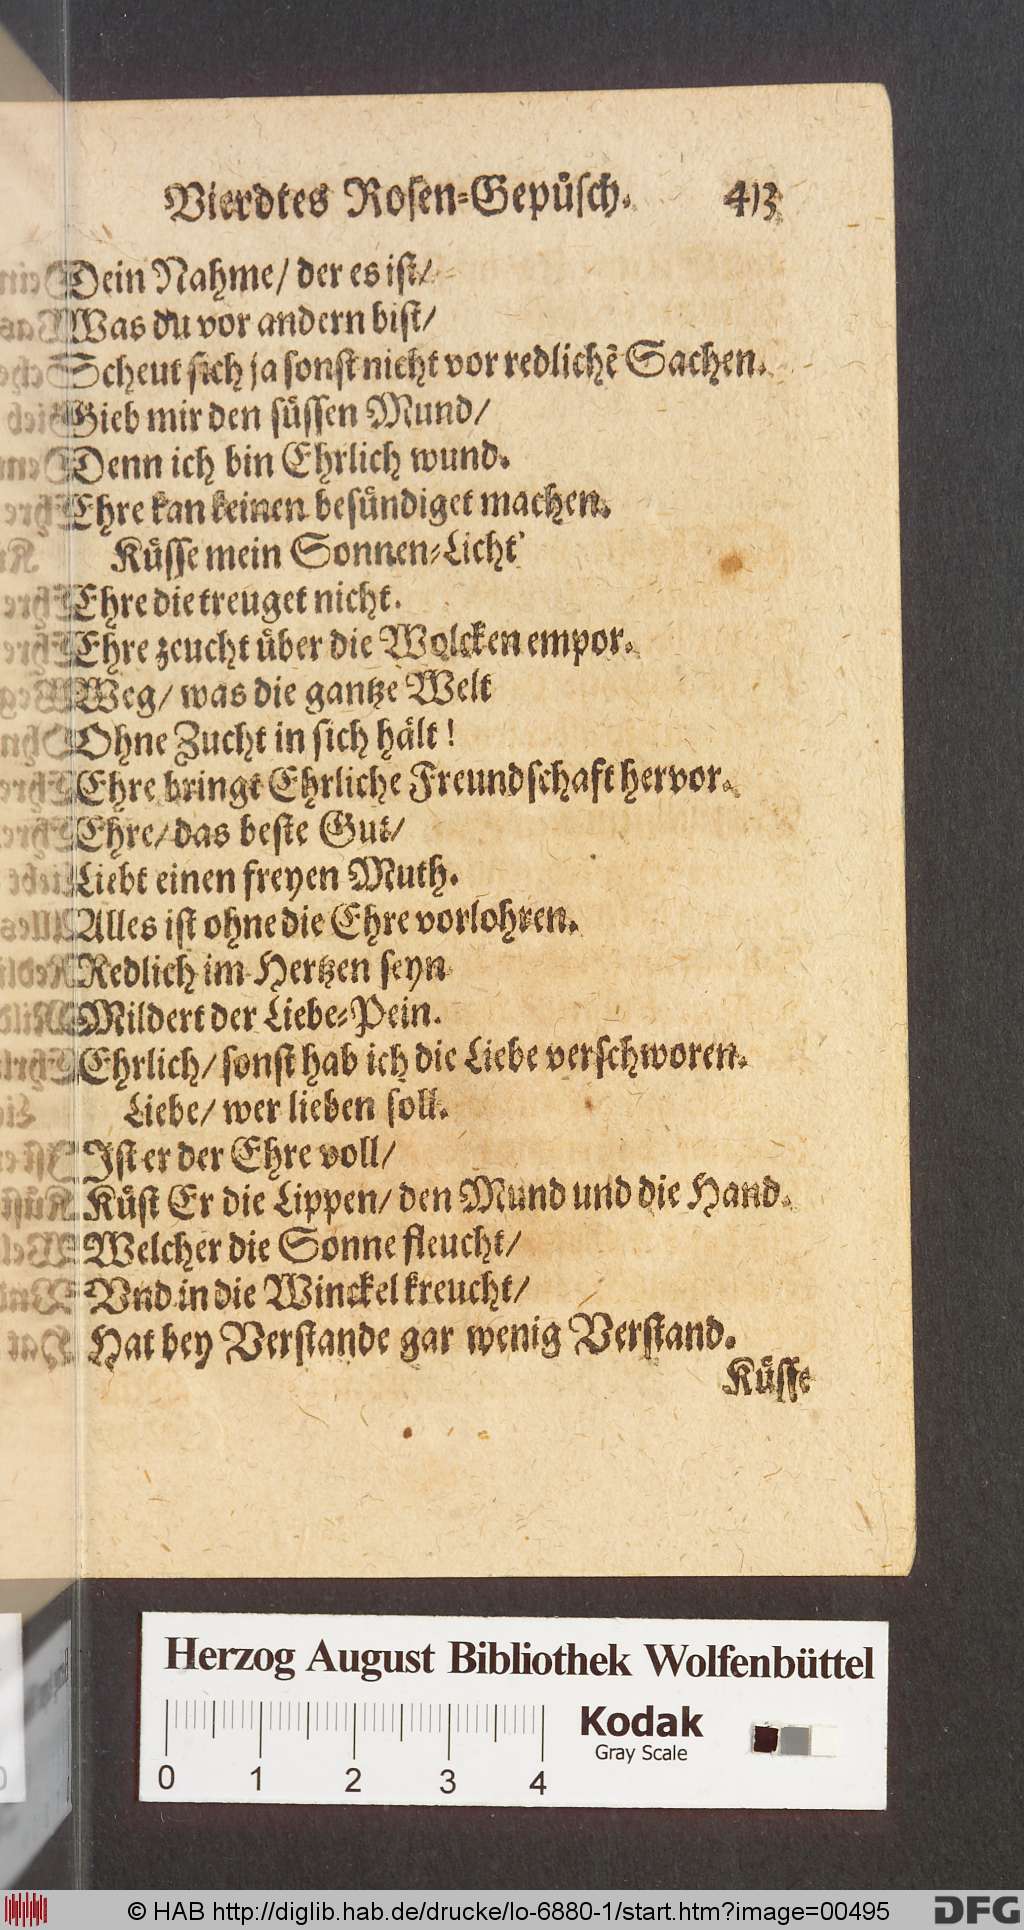 Vierdtes Rosen-Gepüsch. 413
Dein Nahme/ der es ist/
Was du vor andern bist/
Scheut sich ja sonst nicht vor redlichẽ Sachen.
Gieb mir den süssen Mund/
Denn ich bin Ehrlich wund.
Ehre kan keinen besündiget machen.
Küsse mein Sonnen-Licht'
Ehre die treuget nicht.
Ehre zeucht über die Wolcken empor.
Weg/ was die gantze Welt
Ohne Zucht in sich hält!
Ehre bringt Ehrliche Freundschaft hervor.
Ehre/ das beste Gut/
Liebt einen freyen Muth.
Alles ist ohne die Ehre vorlohren.
Redlich im Hertzen seyn
Mildert der Liebe-Pein.
Ehrlich/ sonst hab ich die Liebe verschworen.
Liebe/ wer lieben soll.
Ist er der Ehre voll/
Küst Er die Lippen/ den Mund und die Hand.
Welcher die Sonne fleucht/
Vnd in die Winckel kreucht/
Hat bey Verstande gar wenig Verstand.
Küsse
Herzog August Bibliothek Wolfenbüttel
Kodak
Gray Scale
0 1 2 3 4
© HAB http://diglib.hab.de/drucke/lo-6880-1/start.htm?image=00495
DFG